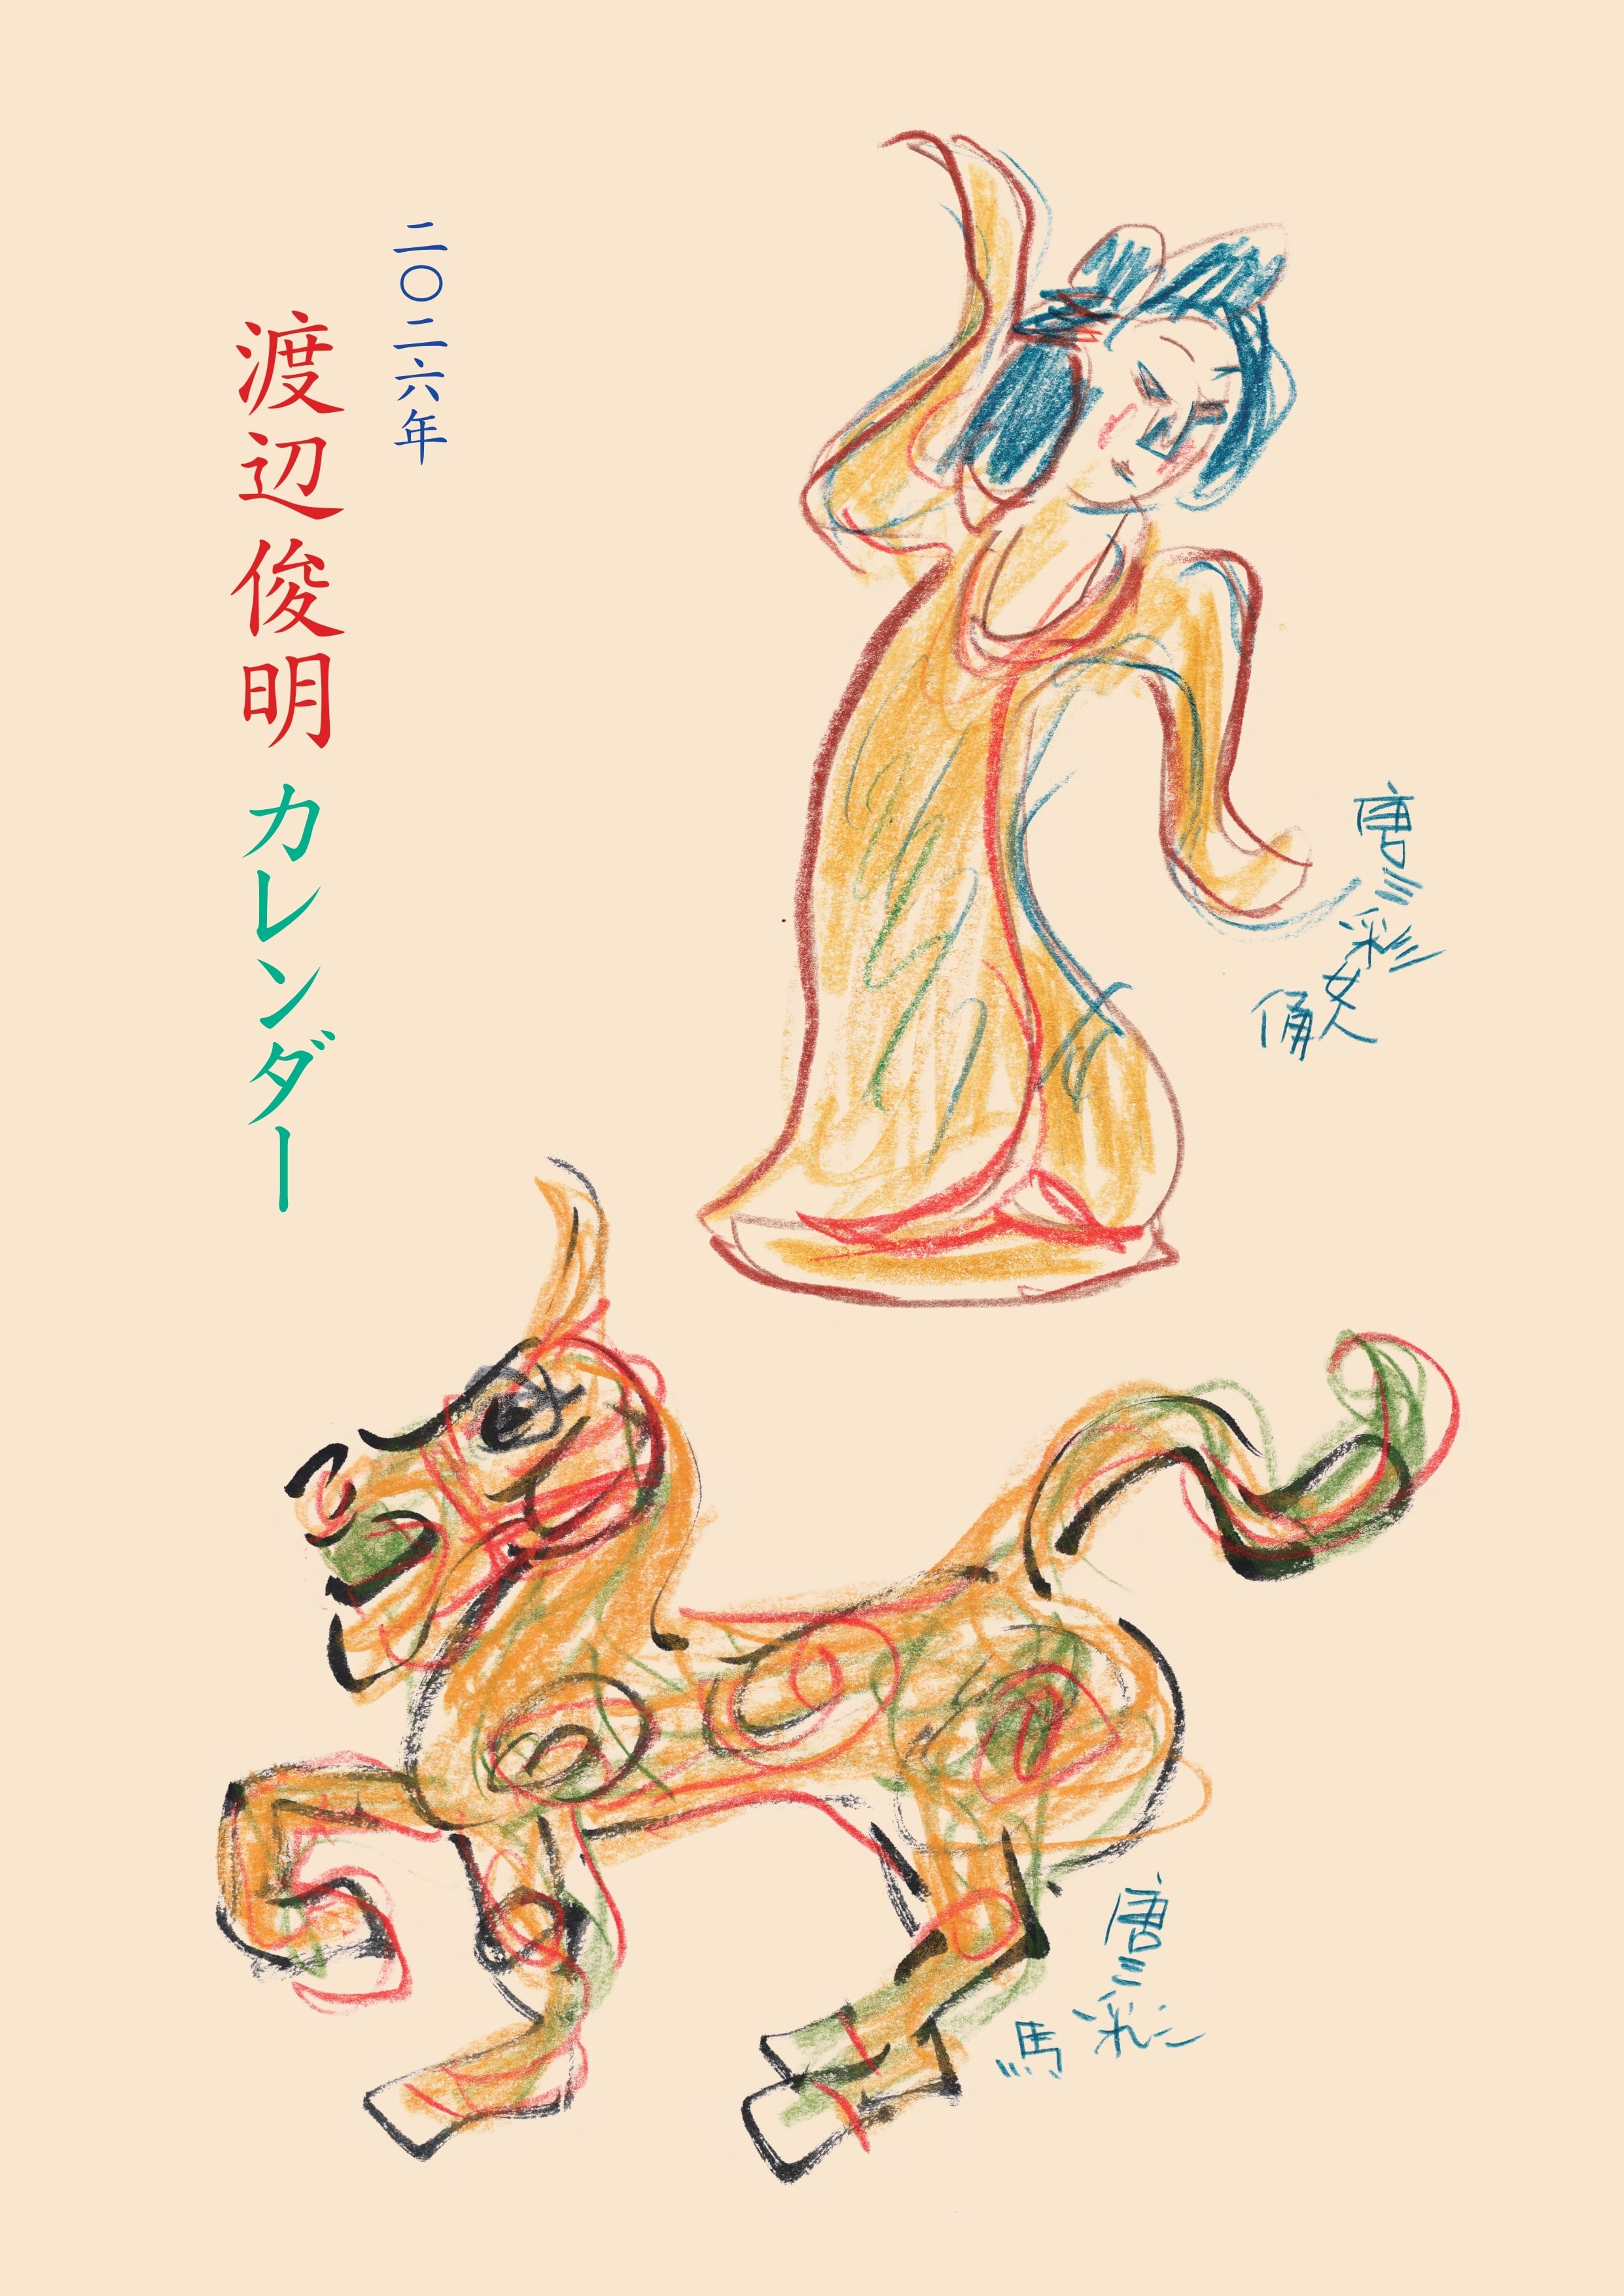 二〇二六年
渡辺俊明カレンダー
唐三彩
女人
俑
唐三彩
馬